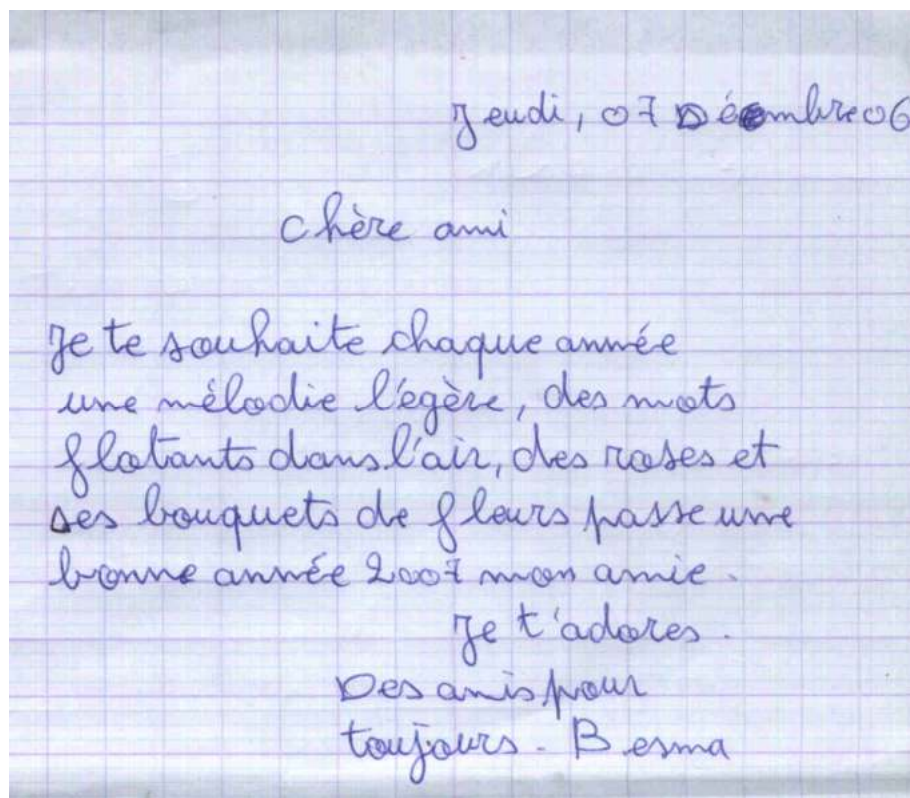 Jeudi, 07 Décembre 06
chère ami
Je te souhaite chaque année
une mélodie l'égère, des mots
flotants dans l'air, des roses et
Des bouquets de fleurs passe une
bonne année 2007 mon amie.
Je t'adores.
Des amis pour
toujours - Besma